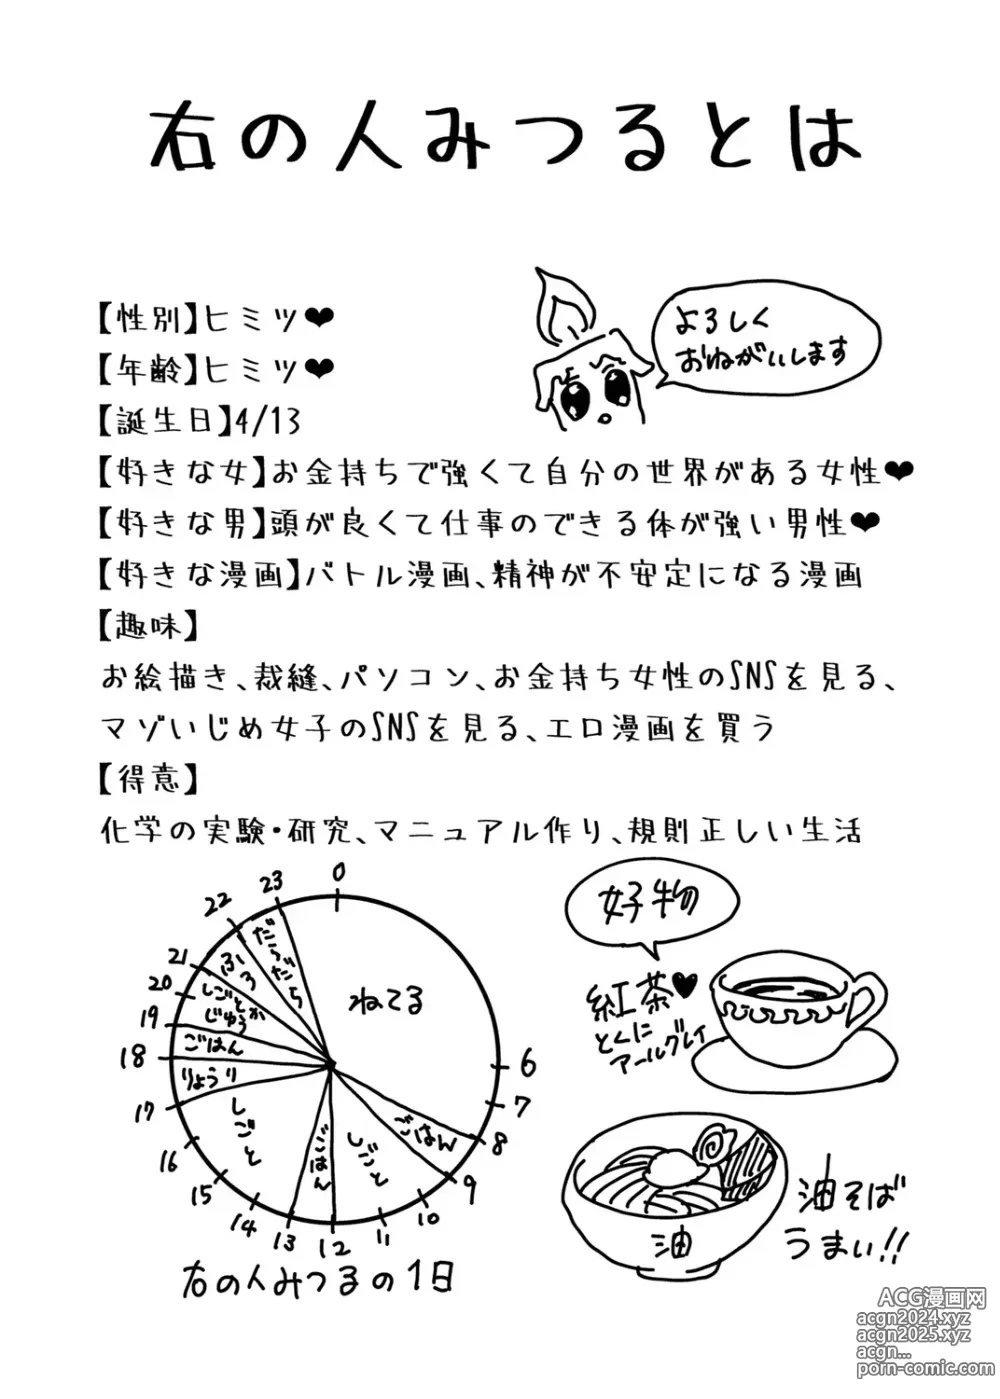 右の人みつるとは
【性別】ヒミツ❤
【年齢】ヒミツ❤
【誕生日】4/13
【好きな女】お金持ちで強くて自分の世界がある女性❤
【好きな男】頭が良くて仕事のできる体が強い男性❤
【好きな漫画】バトル漫画、精神が不安定になる漫画
【趣味】
お絵描き、裁縫、パソコン、お金持ち女性のSNSを見る、
マゾいじめ女子のSNSを見る、エロ漫画を買う
【得意】
化学の実験・研究、マニュアル作り、規則正しい生活
よろしく
おねがいします
0
23
22
21
20
19
18
17
16
15
14
13
12
11
10
9
8
7
6
ねてる
だらだら
ふろ
しごとか
じゆう
ごはん
りょうり
しごと
ごはん
しごと
ごはん
右の人みつるの1日
好物
紅茶♥
とくに
アールグレイ
油
油そば
うまい!!
ACG漫画网
acgn2024.xyz
acgn2025.xyz
acgn...
porn-comic.com